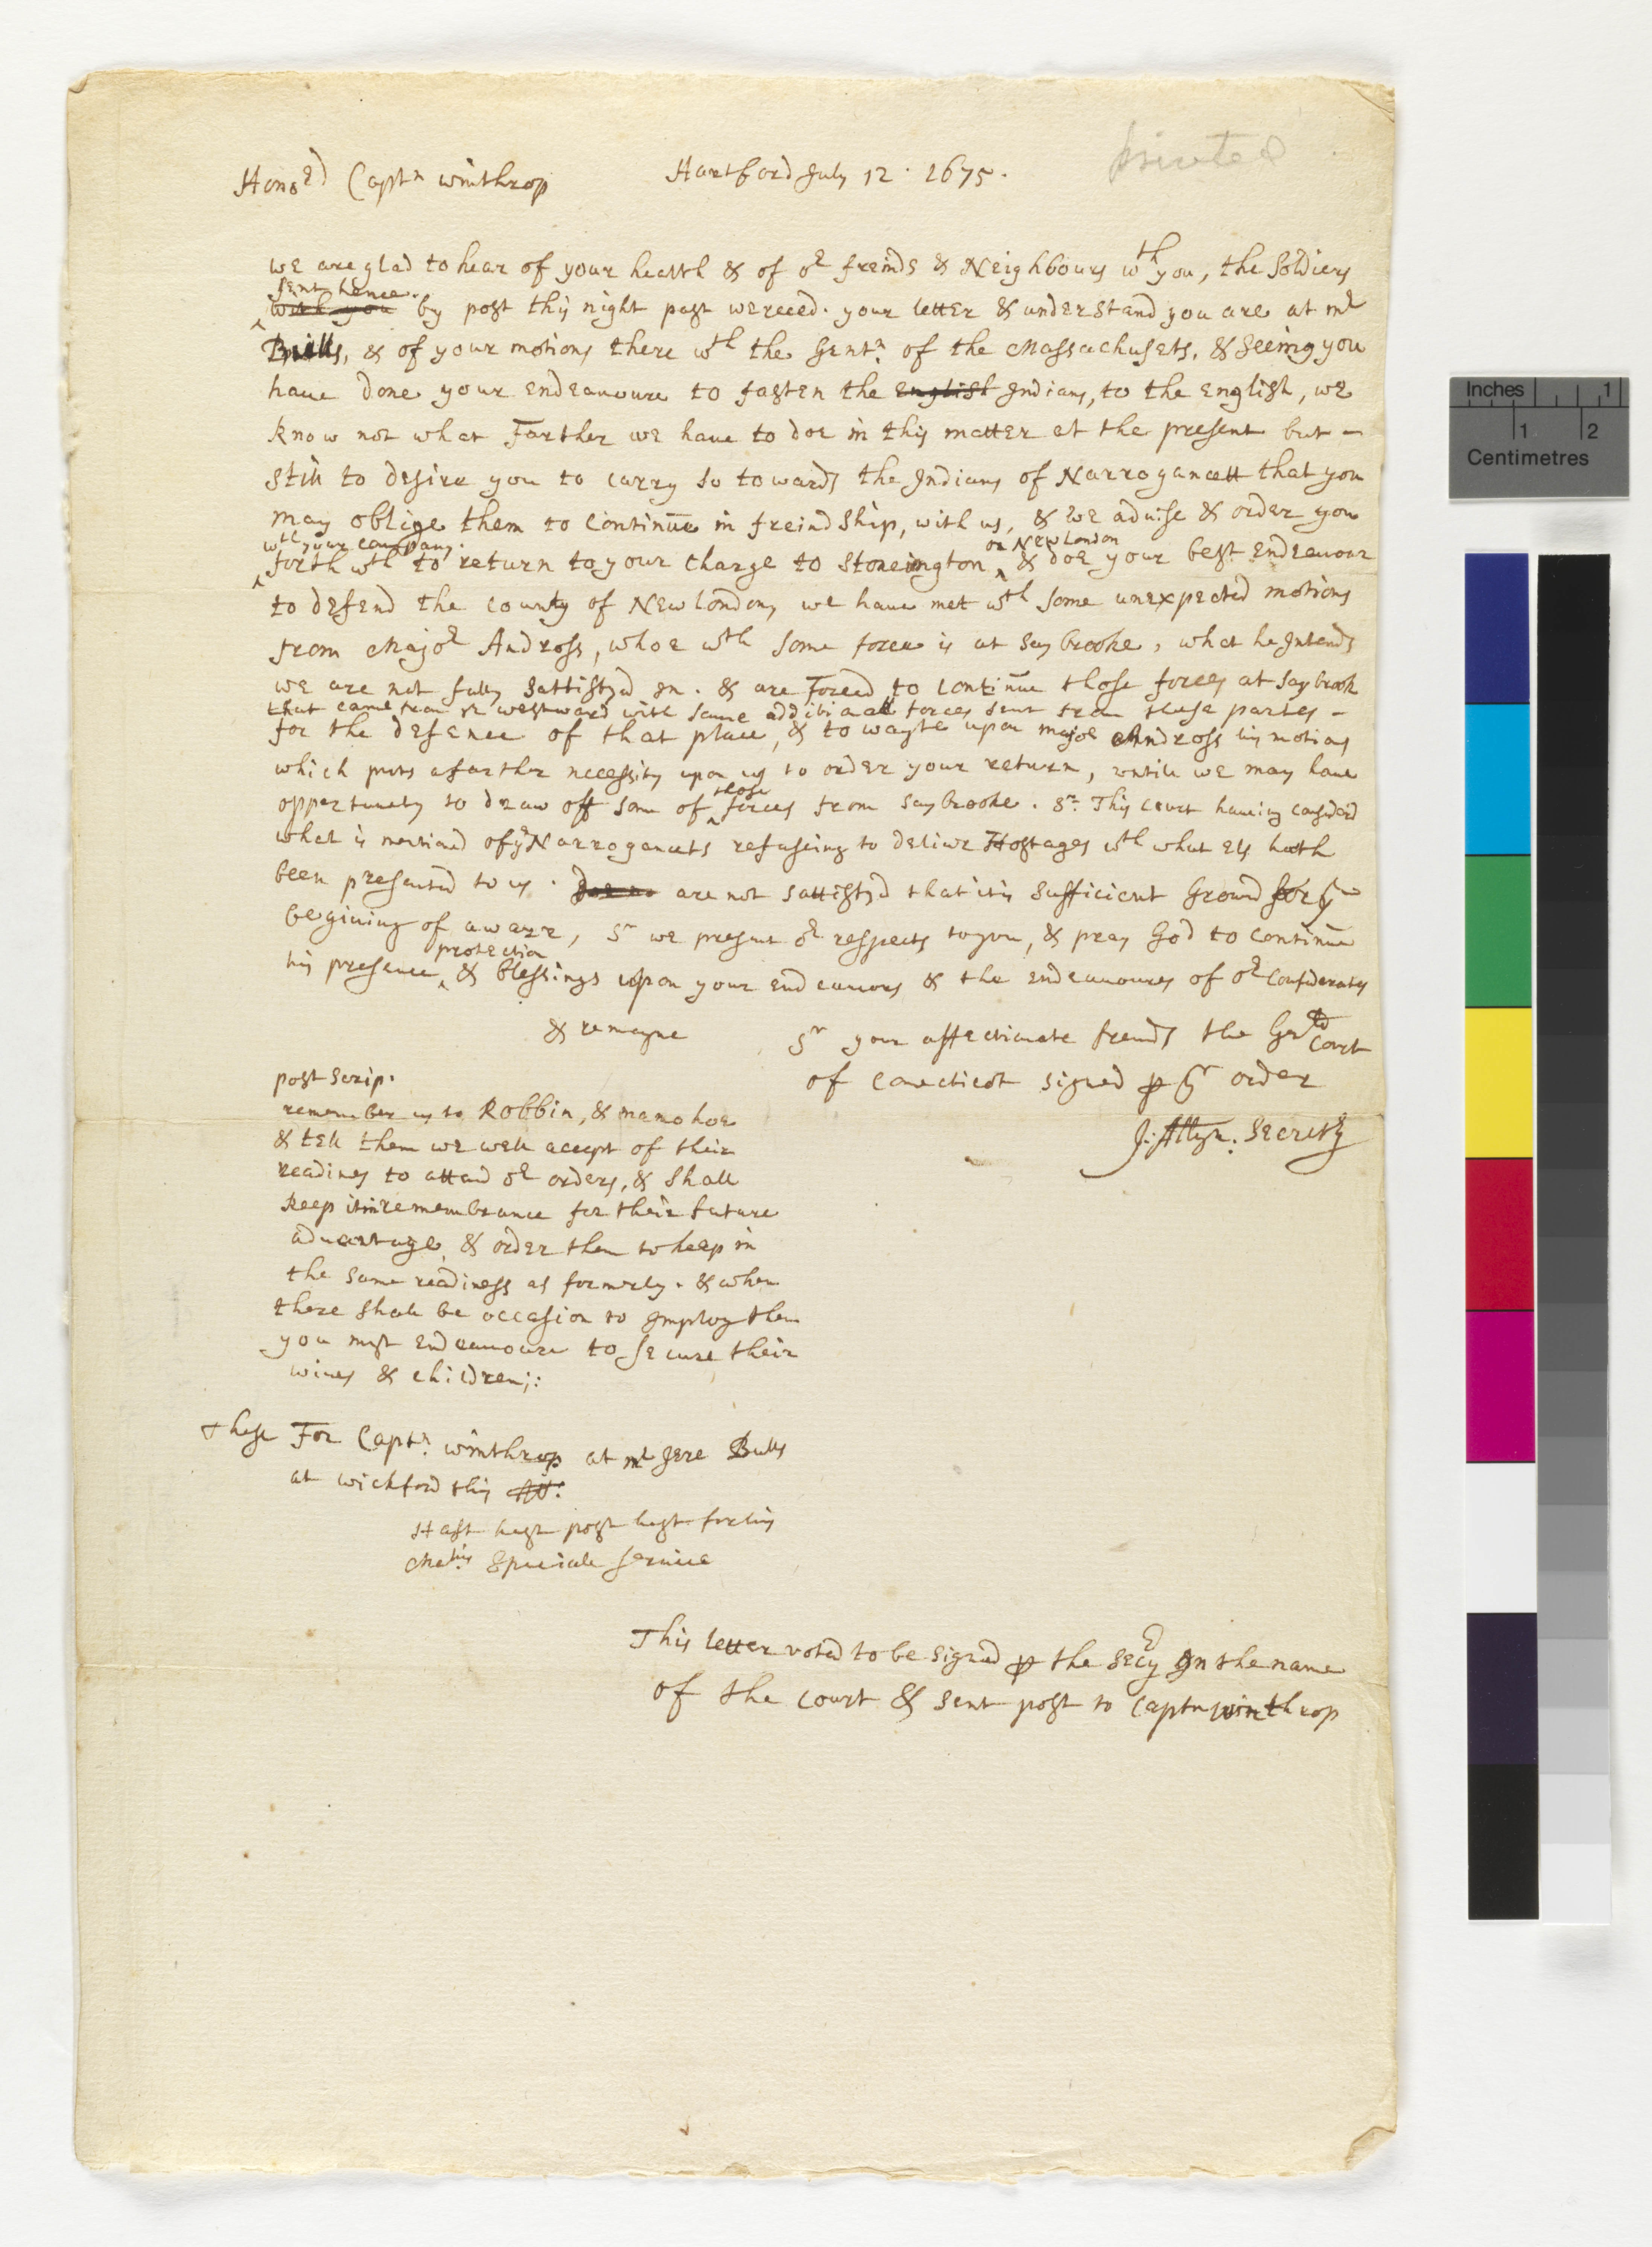 printed
Honord Captn winthrop Hartford July 12. 1675.
we are glad to hear of your health & of or freinds & Neighbours wth you, the Soldiers
sent hence.
with you by post this night past we reced. your letter & understand you are at mr
Bulls, & of your motions there wth the Gentn. of the Massachusets, & seeing you
haue done your endeauoure to fasten the english Indians, to the english, we
know not what Farther we haue to doe in this matter at the present but -
still to desire you to carry so towards the Indians of Narrogancett that you
may oblige them to continue in freindship, with us, & we aduise & order you
wth your company. or New london
forth wth to return to your charge to Stoneington & doe your best endeauour
to defend the county of New london, we haue met wth some unexpected motions
from Major Andross, whoe wth some force is at Say brooke, what he Intends
we are not fully sattisfyd in. & are Forced to continue those forces at Saybrook
that came from ye westward with some additionall forces sent from these partes -
for the defence of that place, & to wayte upon major Andross his motions
which puts a farther necessity upon us to order your return, untill we may haue
those
oppertunety to draw off som of forces from Saybrooke. Sr. This court haueing considerd
what is mentioned of ye Narrogancets refuseing to deliuer Hostages wth what els hath
been presented to us. doe no are not sattisfyd that it is sufficient Ground for ye
begining of a warr, Sr we present or respects to you, & pray God to continue
protection
his presence & blessings upon your endeauors & the endeauoures of or confederates
& remayne Sr your affectionate freinds the Genll Court
of Conecticot signed p yr order
J: Allyn. Secretry
post scrip.
remember us to Robbin, & mamohoe
& tell them we well accept of their
readines to attend or orders, & shall
keep it in remembrance for their future
aduantage, & order them to keep in
the same readiness as formerly. & when
there shall be occasion to Imploy them
you must endeauoure to secure their
wiues & children;:
these For Captn. winthrop at mr Jere Bulls
at wickford this
Hast hast post hast for his
Matis Speciall Seruice
This letter voted to be signed p the Secry In the name
of the court & sent post to Captn winthrop
Inches 1
1 2
Centimetres